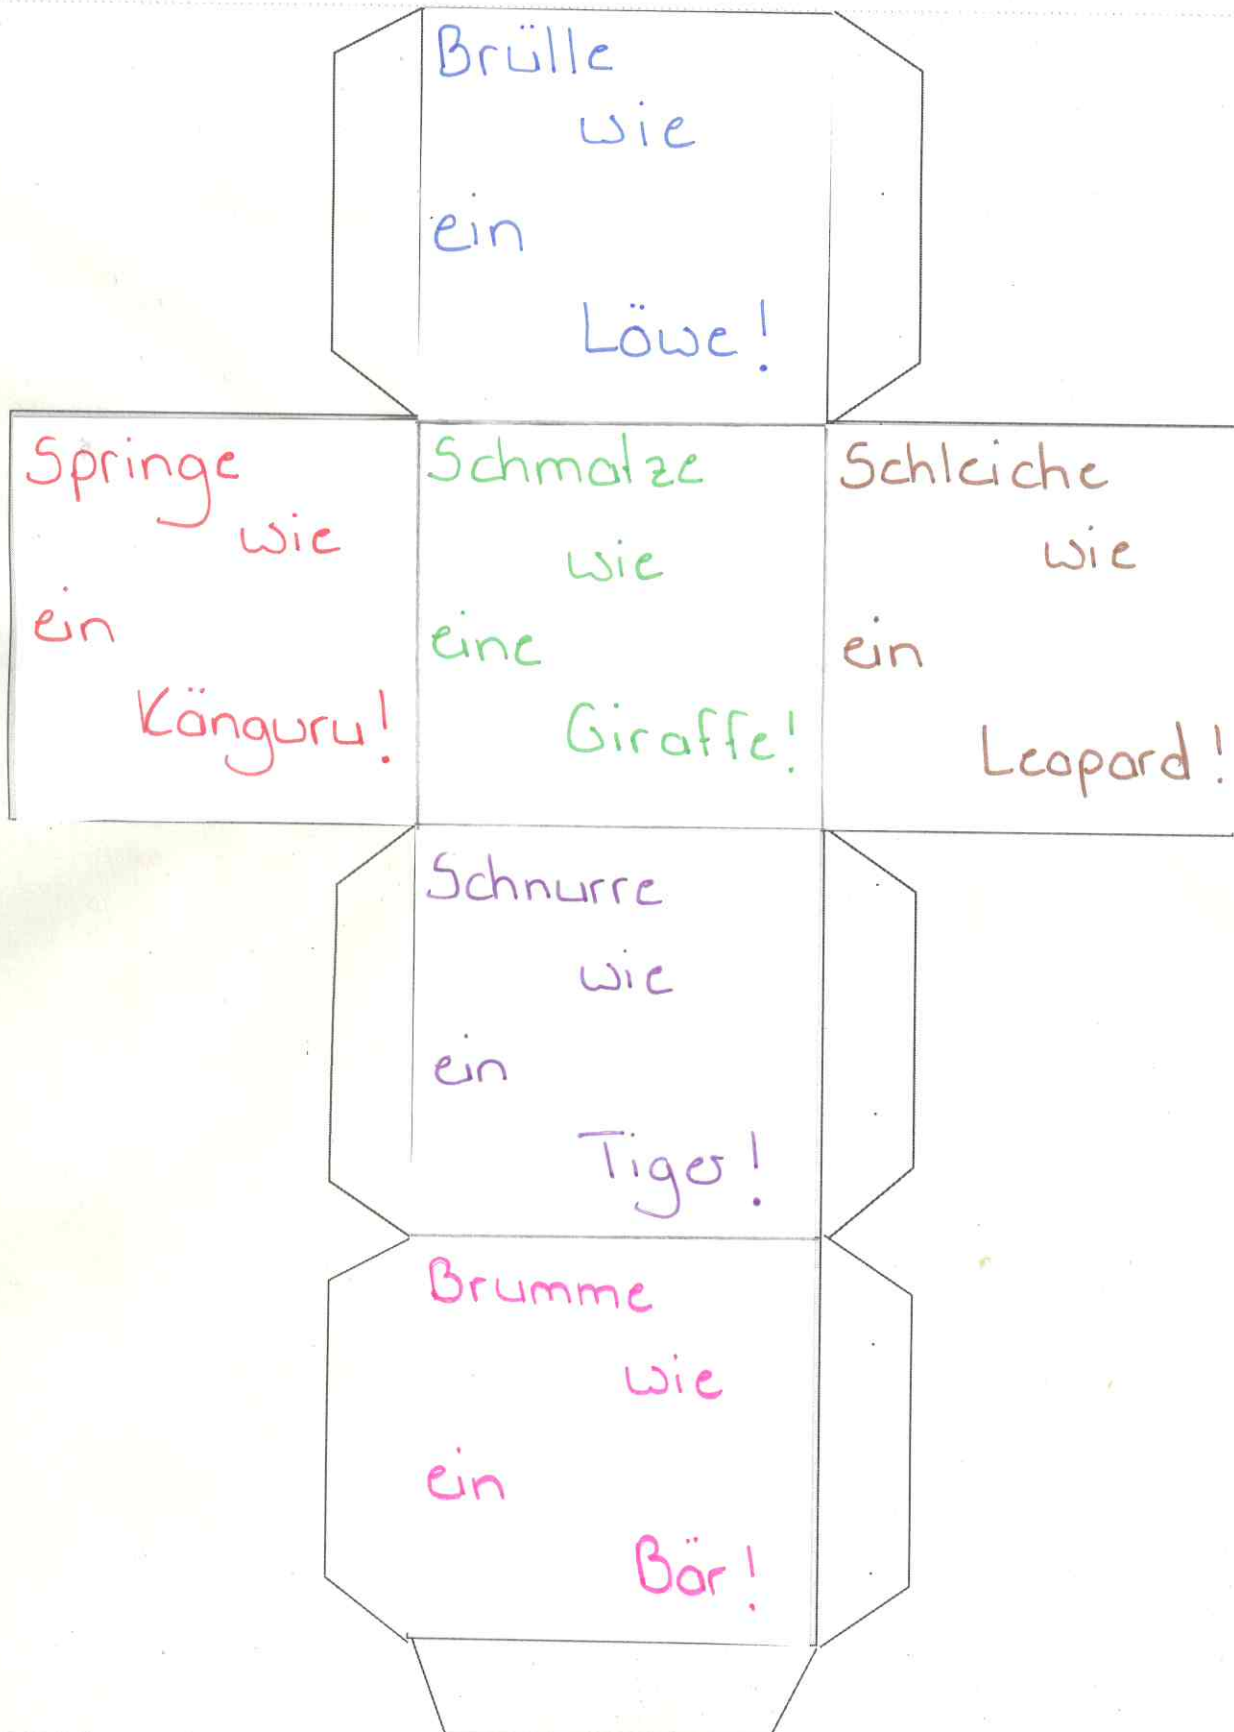 Brülle
wie
ein
Löwe!
Springe
wie
ein
Känguru!
Schmatze
wie
eine
Giraffe!
Schleiche
wie
ein
Leopard!
Schnurre
wie
ein
Tiger!
Brumme
wie
ein
Bär!